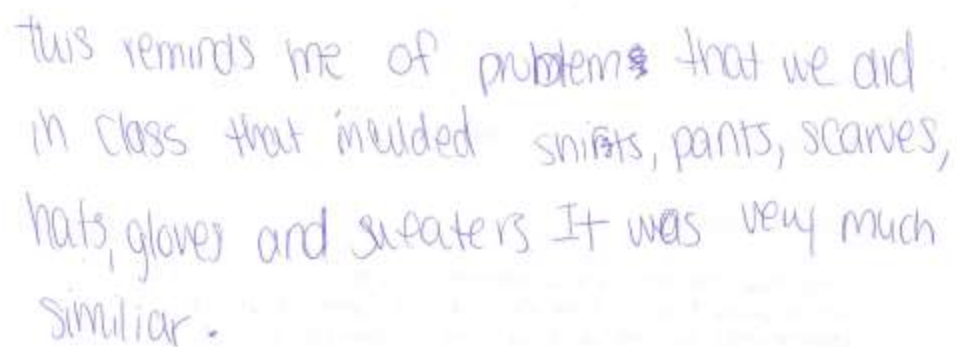 this reminds me of problems that we did
in class that inculded shirts, pants, scarves,
hats, gloves and sweaters It was very much
similiar.